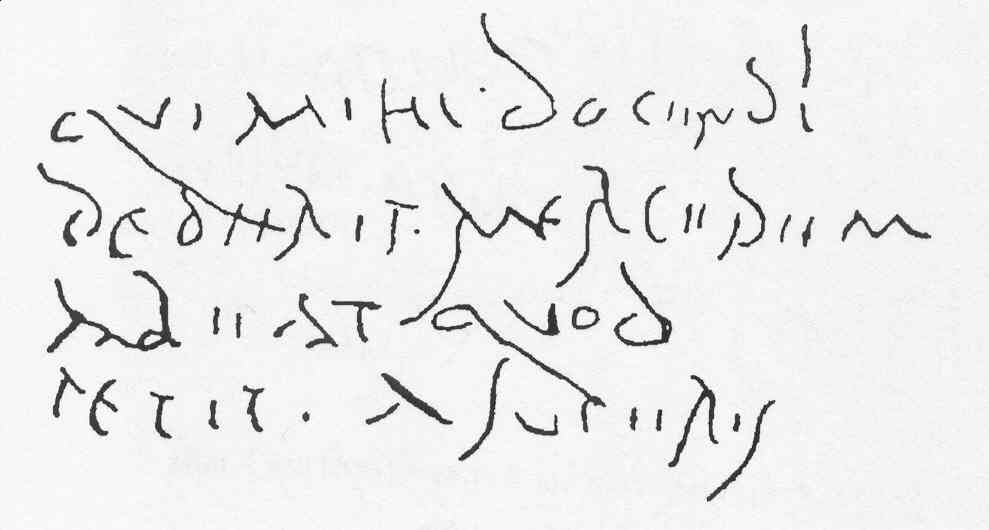 QVI MIHI DOCENDI
DEDERIT · MERCEDEM
ABEAT QVOD
PETIT · A SVPERIS